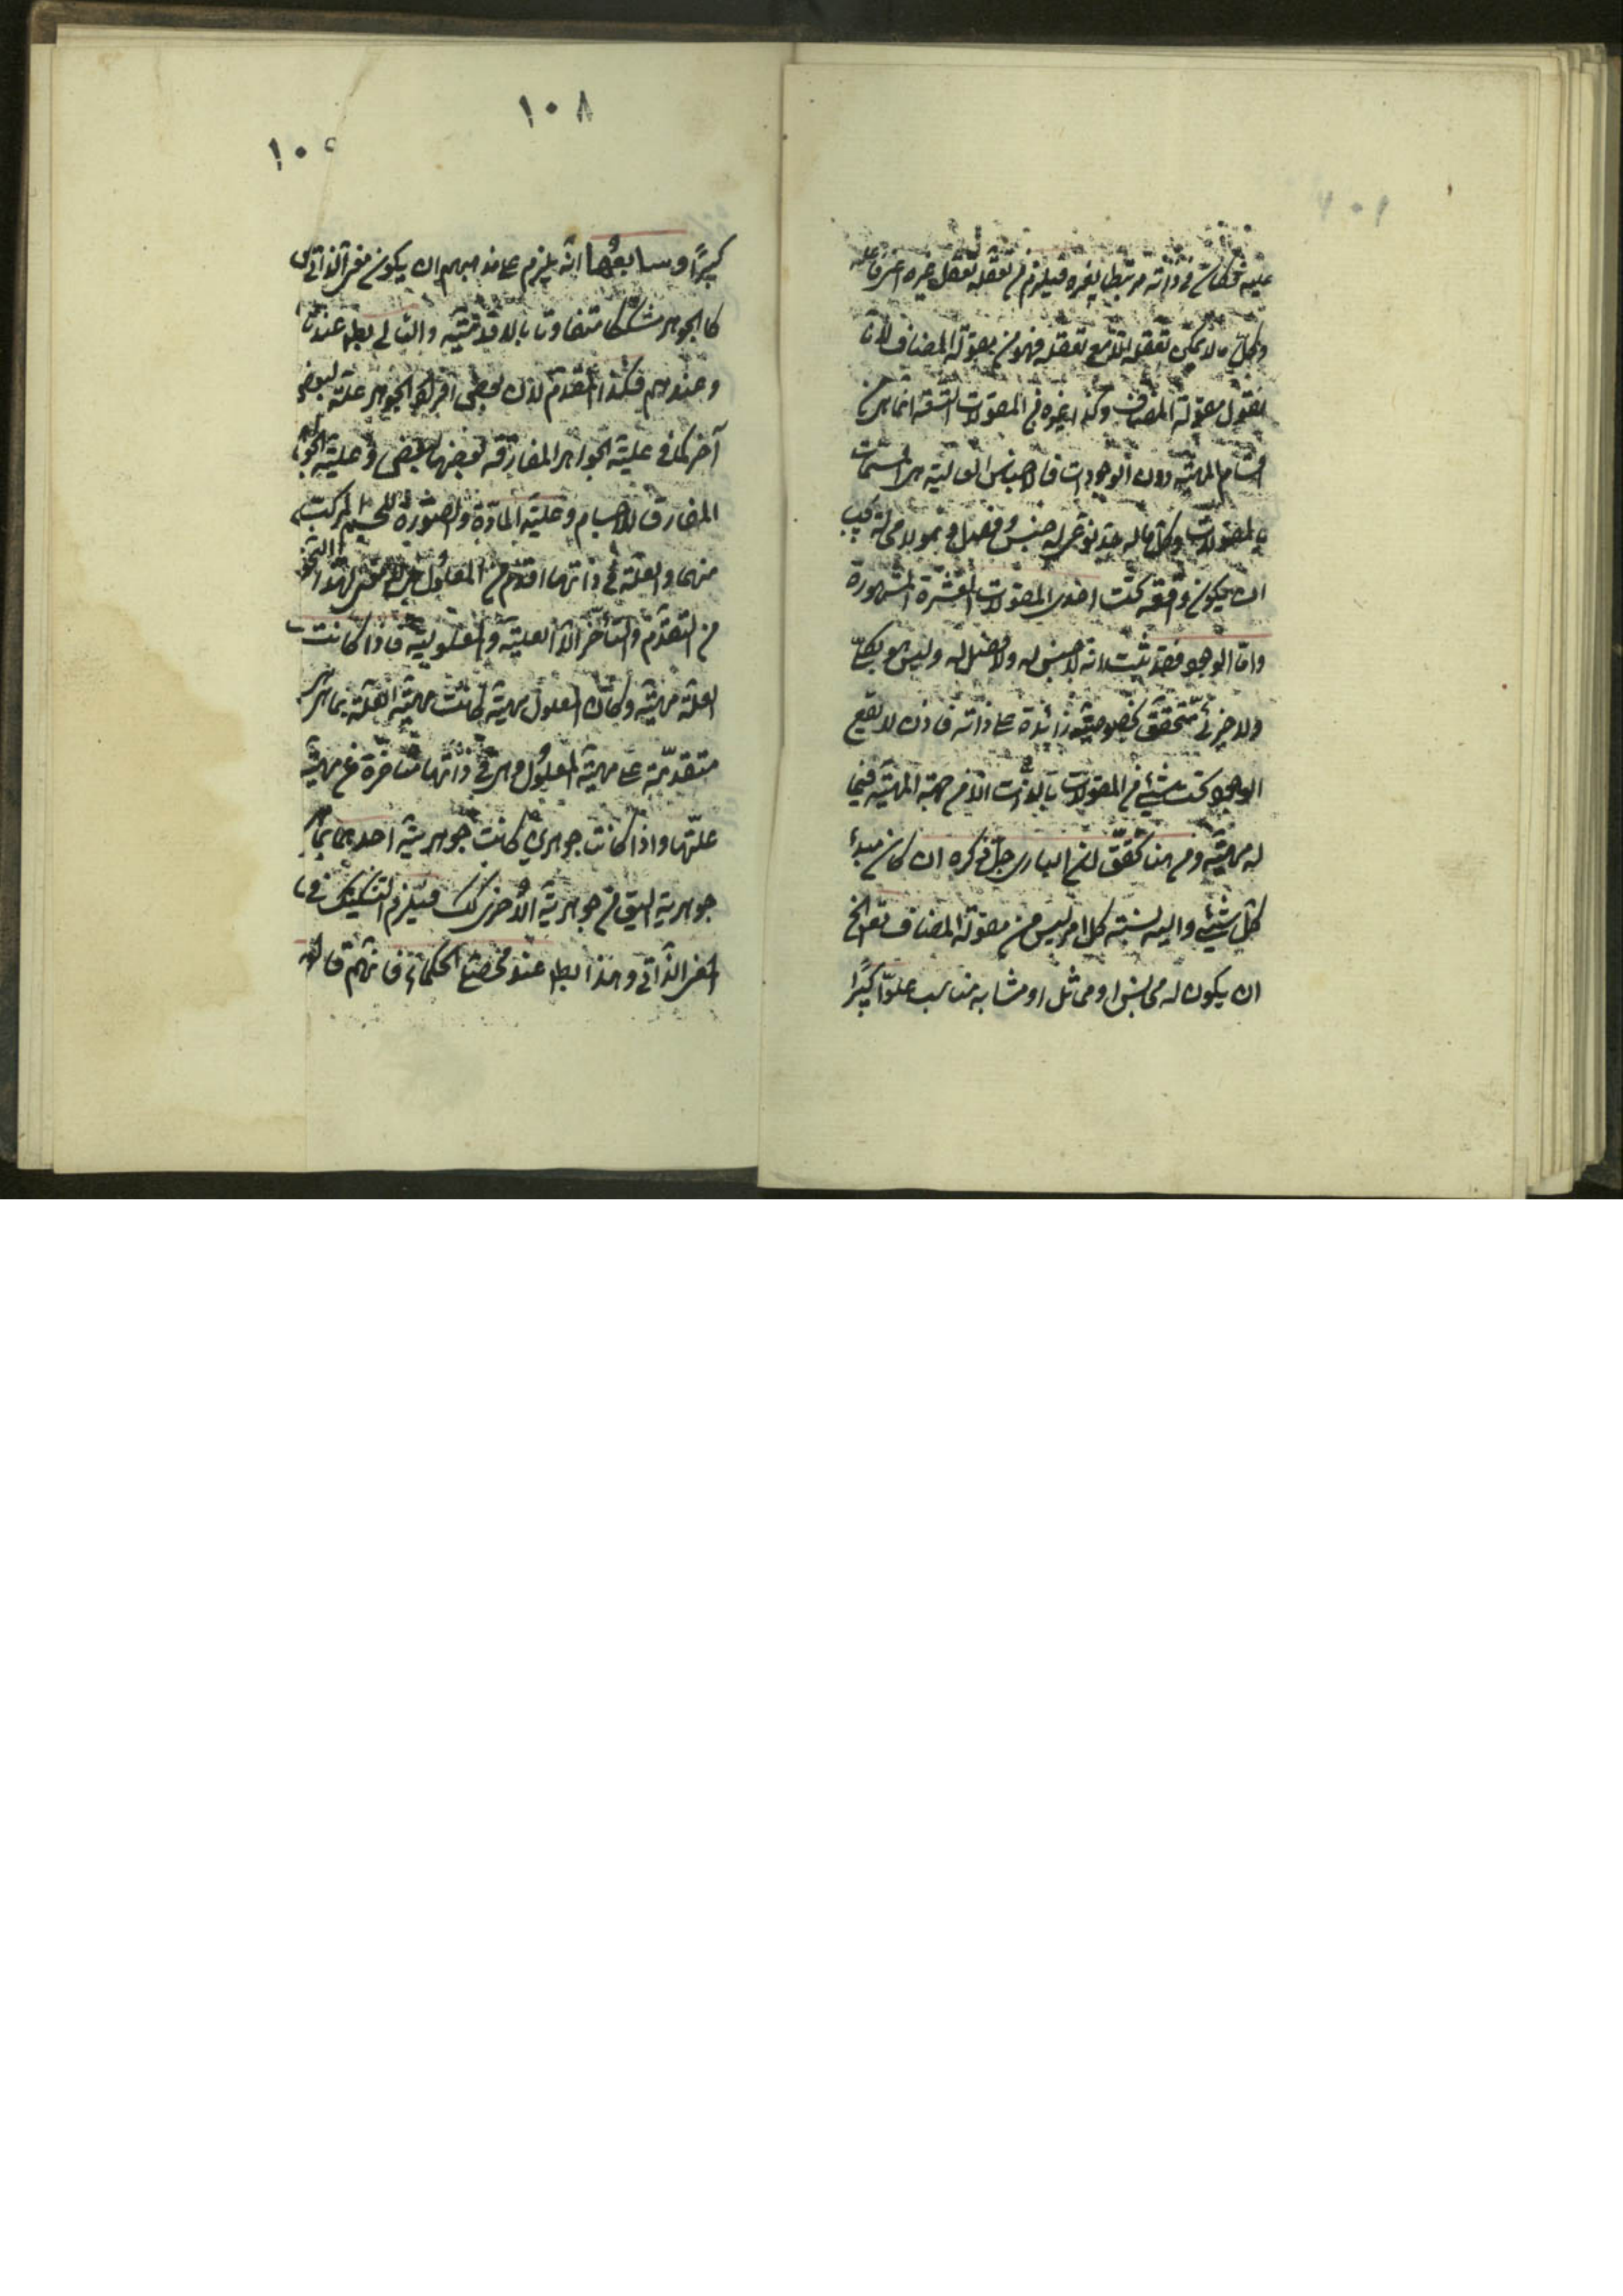 عليه فكان في ذاته مرتبطا بغيره فيلزم من تعقله تعقل غيره اعنى فاعله
وكل ما لا يمكن تعقله الا مع تعقله فهو من مقولة المضاف لانا
نقول مقولة المضاف وكذا غيره من المقولات التسعة انما هى من
اقسام المهية دون الوجودات فالاجناس العالية هى المسمات
بالمقولات وكل ما له حد نوعى له جنس وفصل فهو لا محالة يجب
ان يكون واقعة تحت احدى المقولات العشرة المشهورة
واما الوجود فقد ثبت انه لا جنس له ولا فصل له وليس هو بكلى
ولا جزئى متحقق بخصوصية زائدة على ذاته فاذن لا يقع
الوجود تحت شئ من المقولات بالذات الا من جهة المهية فيما
له مهية ومن هنا تحقق ان البارى جل ذكره ان كان مبدأ
كل شئ واليه نسبة كل امر ليس من مقولة المضاف تعالى
ان يكون له مجانس او مماثل او مشابه او مناسب علوا كبيرا
١٠٨
١٠٥
كبيرا وسابعها انه يلزم على مذهبهم ان يكون معنى الذاتى
كالجوهر مشككا متفاوتا بالاقدمية والتالى بط عندنا
وعندهم فكذا المقدم لان بعض افراد الجوهر علة لبعض
آخر كما فى علية الجواهر المفارقة بعضها لبعض وعلية الجواهر
المفارق للاجسام وعلية المادة والصورة للجسم المركب
منهما والعلة فى ذاتها اقدم من المعلول ولا معنى لهذا النحو
من التقدم والتأخر الا العلية والمعلولية فاذا كانت
العلة مهية وكان المعلول مهية كانت مهية العلة بما هى
متقدمة على مهية المعلول وهى فى ذاتها متأخرة عن مهية
علتها واذا كانتا جوهرين كانت جوهرية احدهما بما هى
جوهرية اسبق من جوهرية الاخرى كك فيلزم التشكيك فى
المعنى الذاتى وهذا بط عند محصلى الحكماء فانهم قالوا